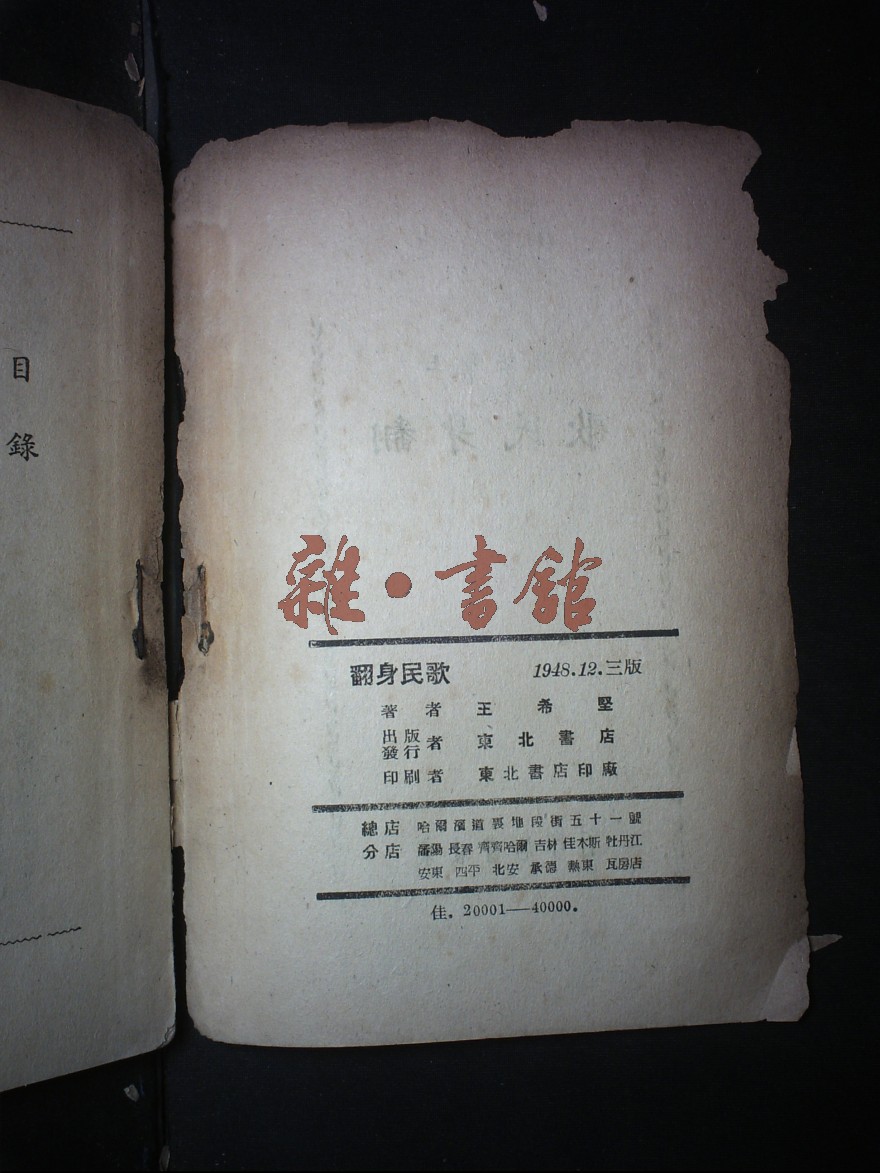 目錄
雜·書舘
翻身民歌 1948.12.三版
著者 王希堅
出版
發行者 東北書店
印刷者 東北書店印廠
總店 哈爾濱道裏地段街五十一號
分店 瀋陽 長春 齊齊哈爾 吉林 佳木斯 牡丹江
安東 四平 北安 承德 熱東 瓦房店
佳. 20001——40000.